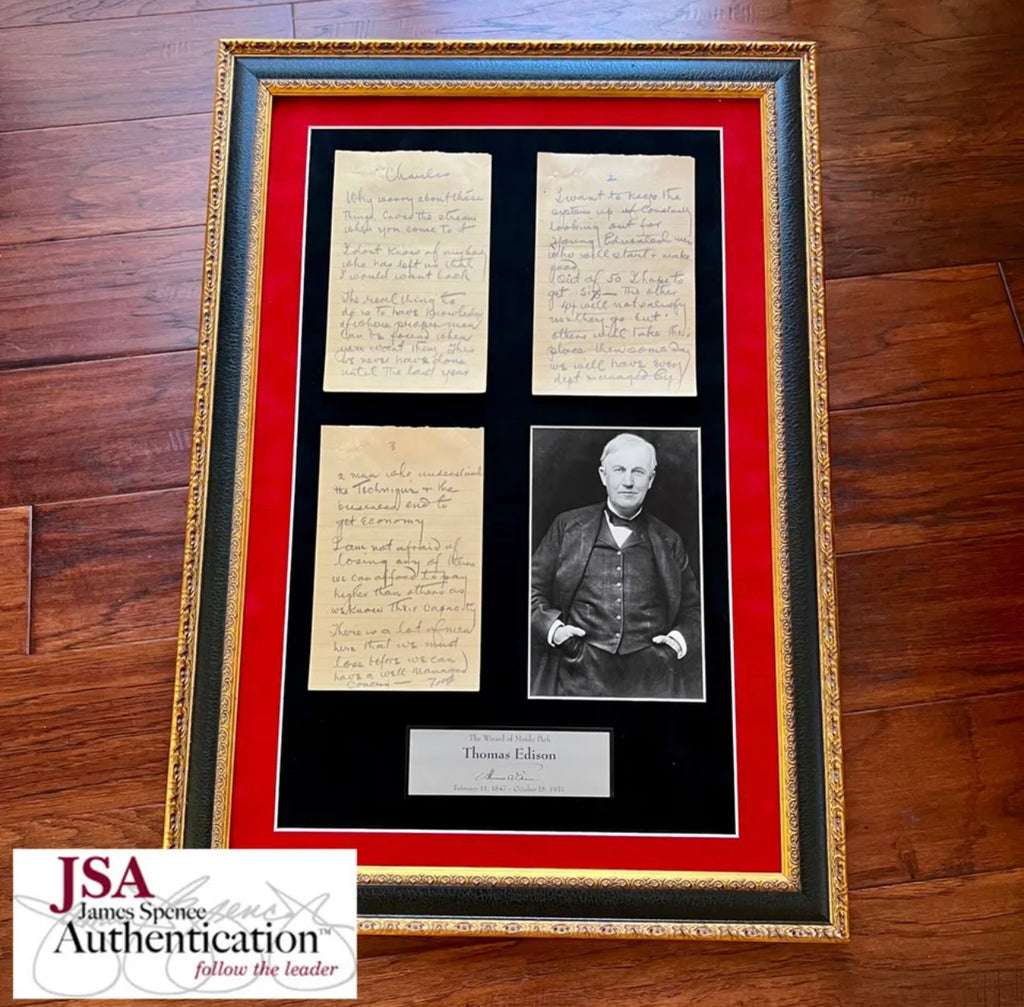 Charles
Why worry about these
things. Cross the stream
when you come to it
I dont Know of anybody
who has left us that
I would want back
The real thing to
do is to have Knowledge
of where proper men
Can be found when
you want them This
we never have done
until The last year
2
I want to keep the
system up of Constantly
Looking out for
Young Educated men
who will start & make
good
Out of 50 I hope to
get Six — The other
44 will not satisfy
us & they go but
others will take their
place then some day
we will have every
dept managed by
3
a man who understands
the Technique & the
business end to
get Economy
I am not afraid of
losing any of them
we can afford to pay
higher than others as
we know Their Capacity
There is a lot of men
here that we must
lose before we can
have a well Managed
Concern —
The Wizard of Menlo Park
Thomas Edison
Thomas A Edison
February 11, 1847 - October 18, 1931
JSA
James Spence
Authentication™
follow the leader